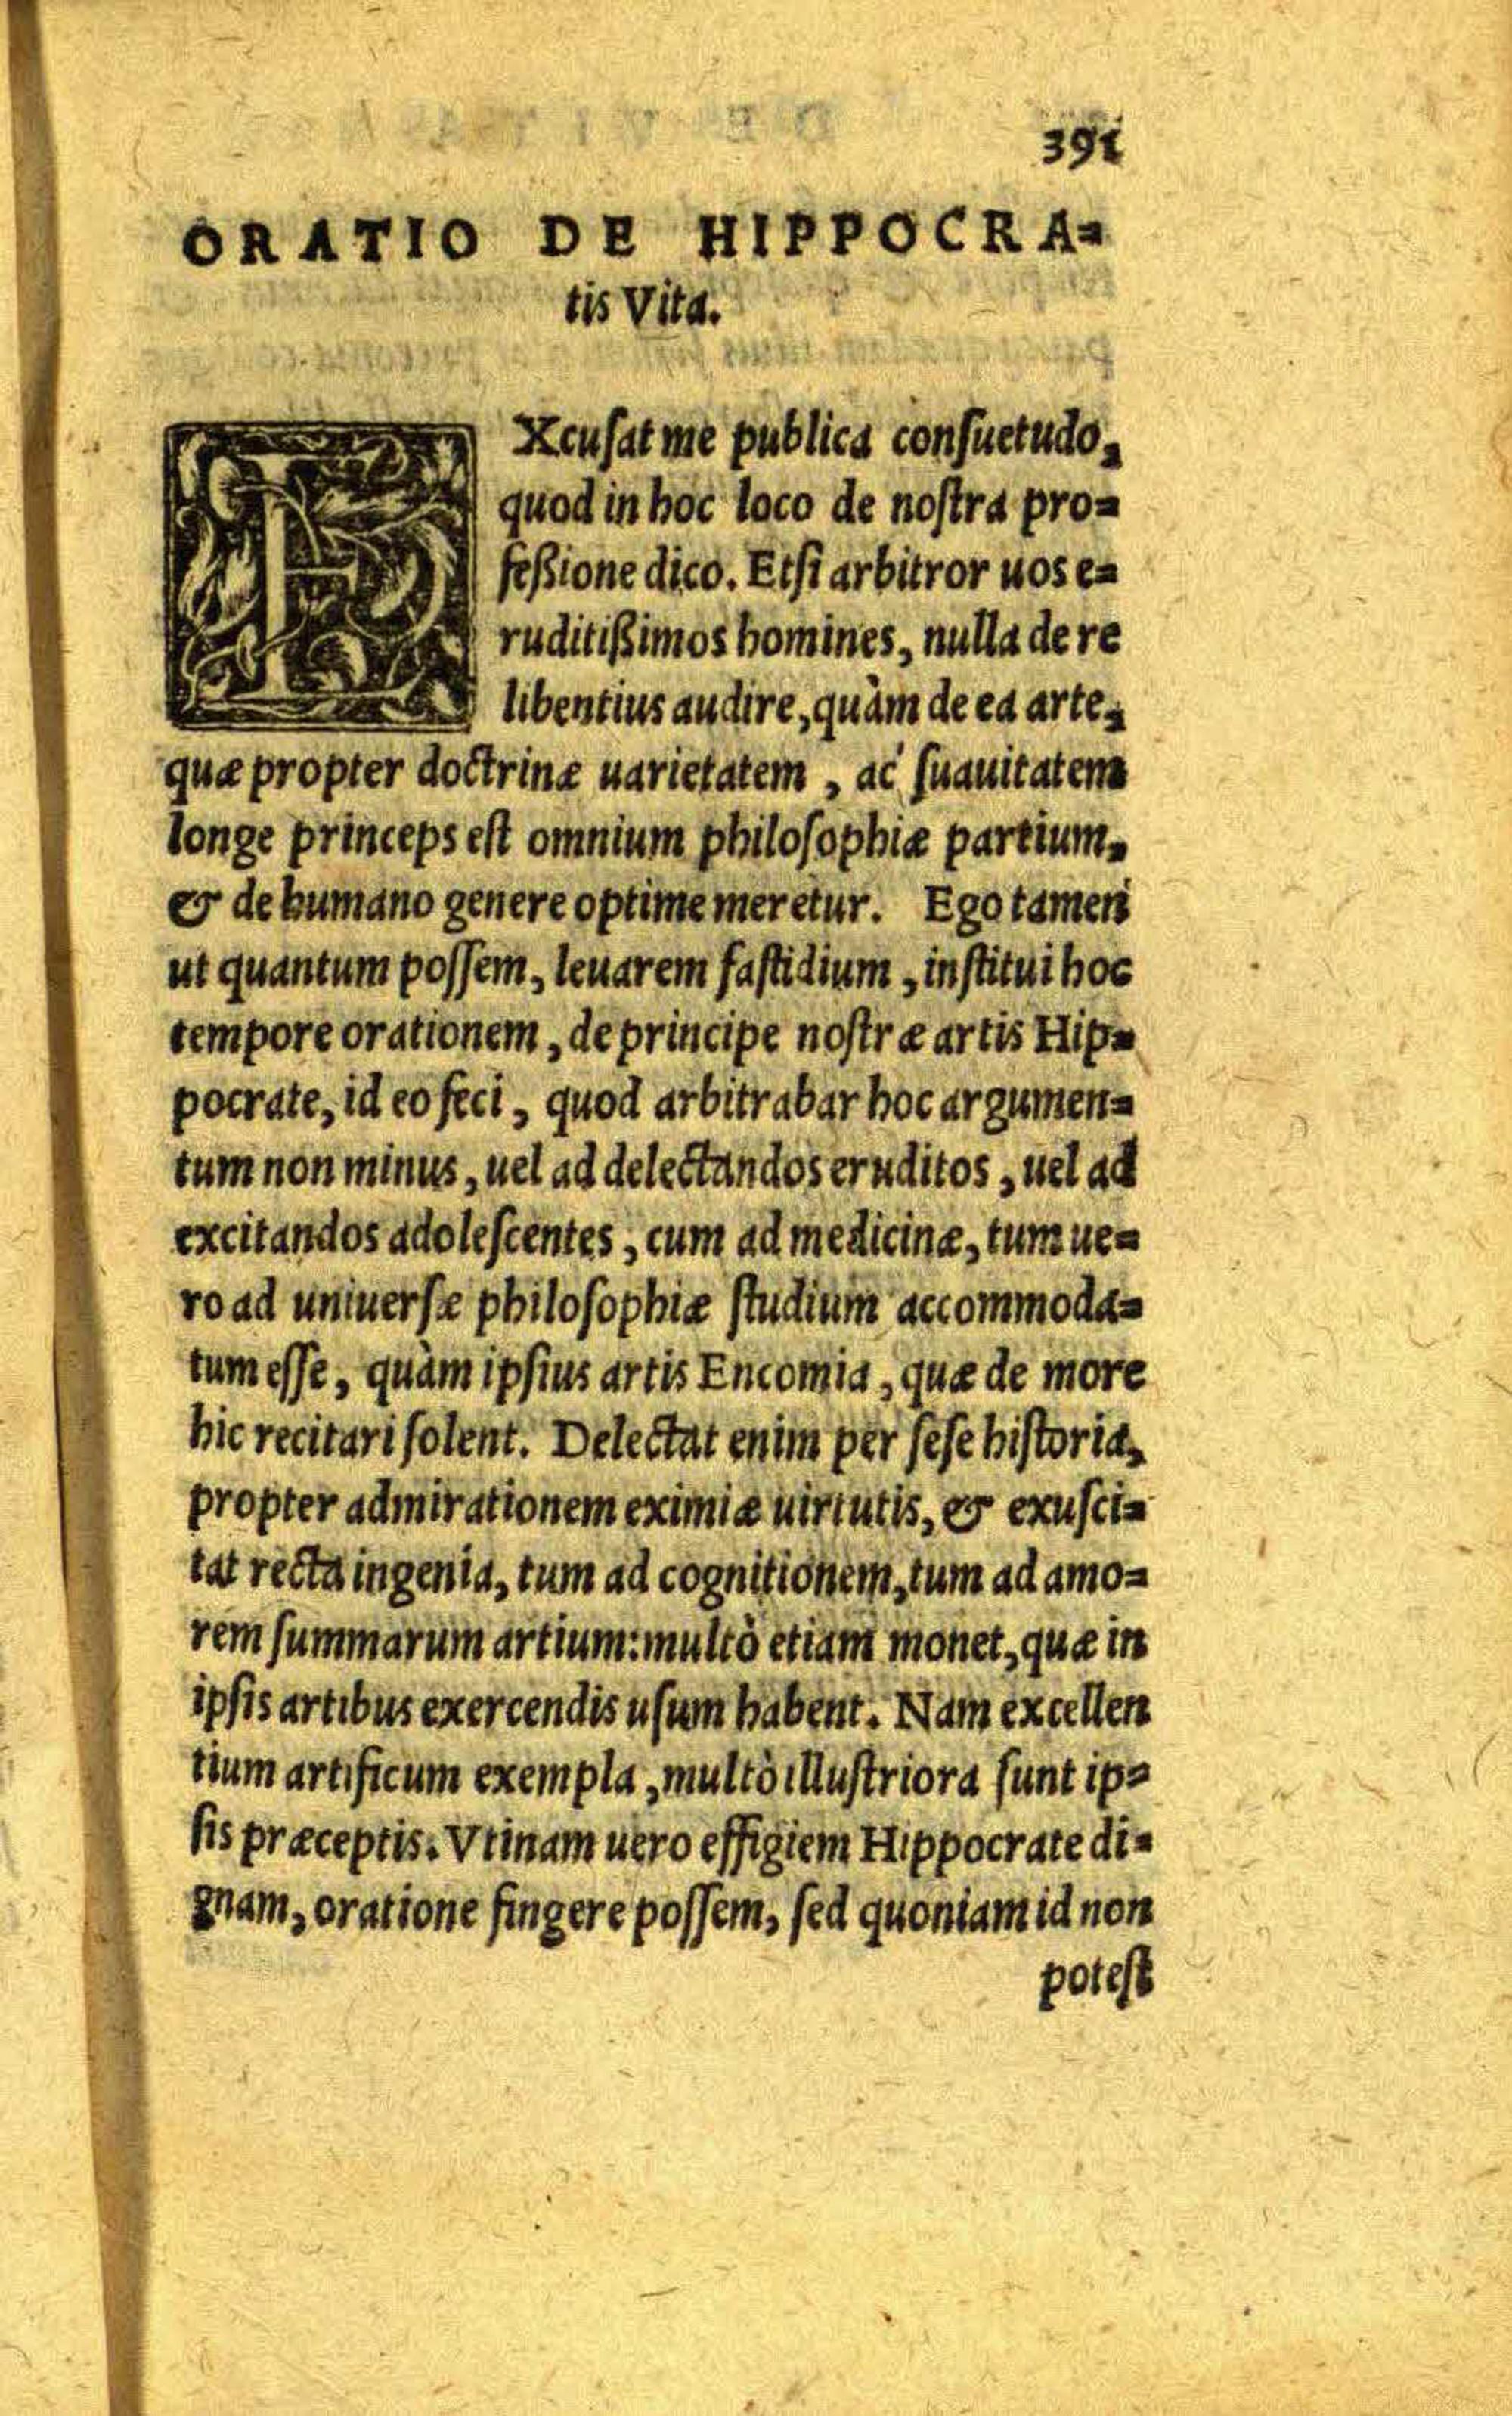 391
ORATIO DE HIPPOCRA=
tis Vita.
EXcuſat me publica conſuetudo,
quod in hoc loco de noſtra pro=
feßione dico. Etſi arbitror uos e=
ruditißimos homines, nulla de re
libentius audire, quàm de ea arte,
quæ propter doctrinæ uarietatem, ac ſuauitatem
longe princeps eſt omnium philoſophiæ partium,
& de humano genere optime meretur. Ego tamen
ut quantum poſſem, leuarem faſtidium, inſtitui hoc
tempore orationem, de principe noſtræ artis Hip=
pocrate, id eo feci, quod arbitrabar hoc argumen=
tum non minus, uel ad delectandos eruditos, uel ad
excitandos adoleſcentes, cum ad medicinæ, tum ue=
ro ad uniuerſæ philoſophiæ ſtudium accommoda=
tum eſſe, quàm ipſius artis Encomia, quæ de more
hic recitari ſolent. Delectat enim per ſeſe hiſtoria,
propter admirationem eximiæ uirtutis, & exuſci=
tat recta ingenia, tum ad cognitionem, tum ad amo=
rem ſummarum artium: multò etiam monet, quæ in
ipſis artibus exercendis uſum habent. Nam excellen
tium artificum exempla, multò illuſtriora ſunt ip=
ſis præceptis. Vtinam uero effigiem Hippocrate di=
gnam, oratione fingere poſſem, ſed quoniam id non
poteſt